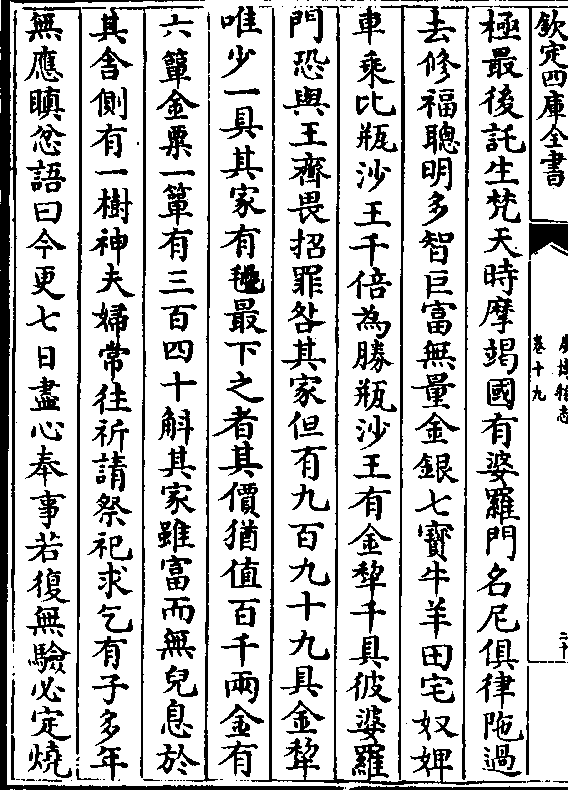 欽定四庫全書
卷十九
極最後託生梵天時摩竭國有婆羅門名尼俱律陁過
去修福聰明多智巨富無量金銀七寶牛羊田宅奴婢
車乘比瓶沙王千倍為勝瓶沙王有金犂千具彼婆羅
門恐與王齊畏招罪咎其家但有九百九十九具金犂
唯少一具其家有㲲最下之者其價猶值百千兩金有
六簞金粟一簞有三百四十斛其家雖富而無兒息於
其舍側有一樹神夫婦常往祈請祭祀求乞有子多年
無應瞋忿語曰今更七日盡心奉事若復無驗必定燒